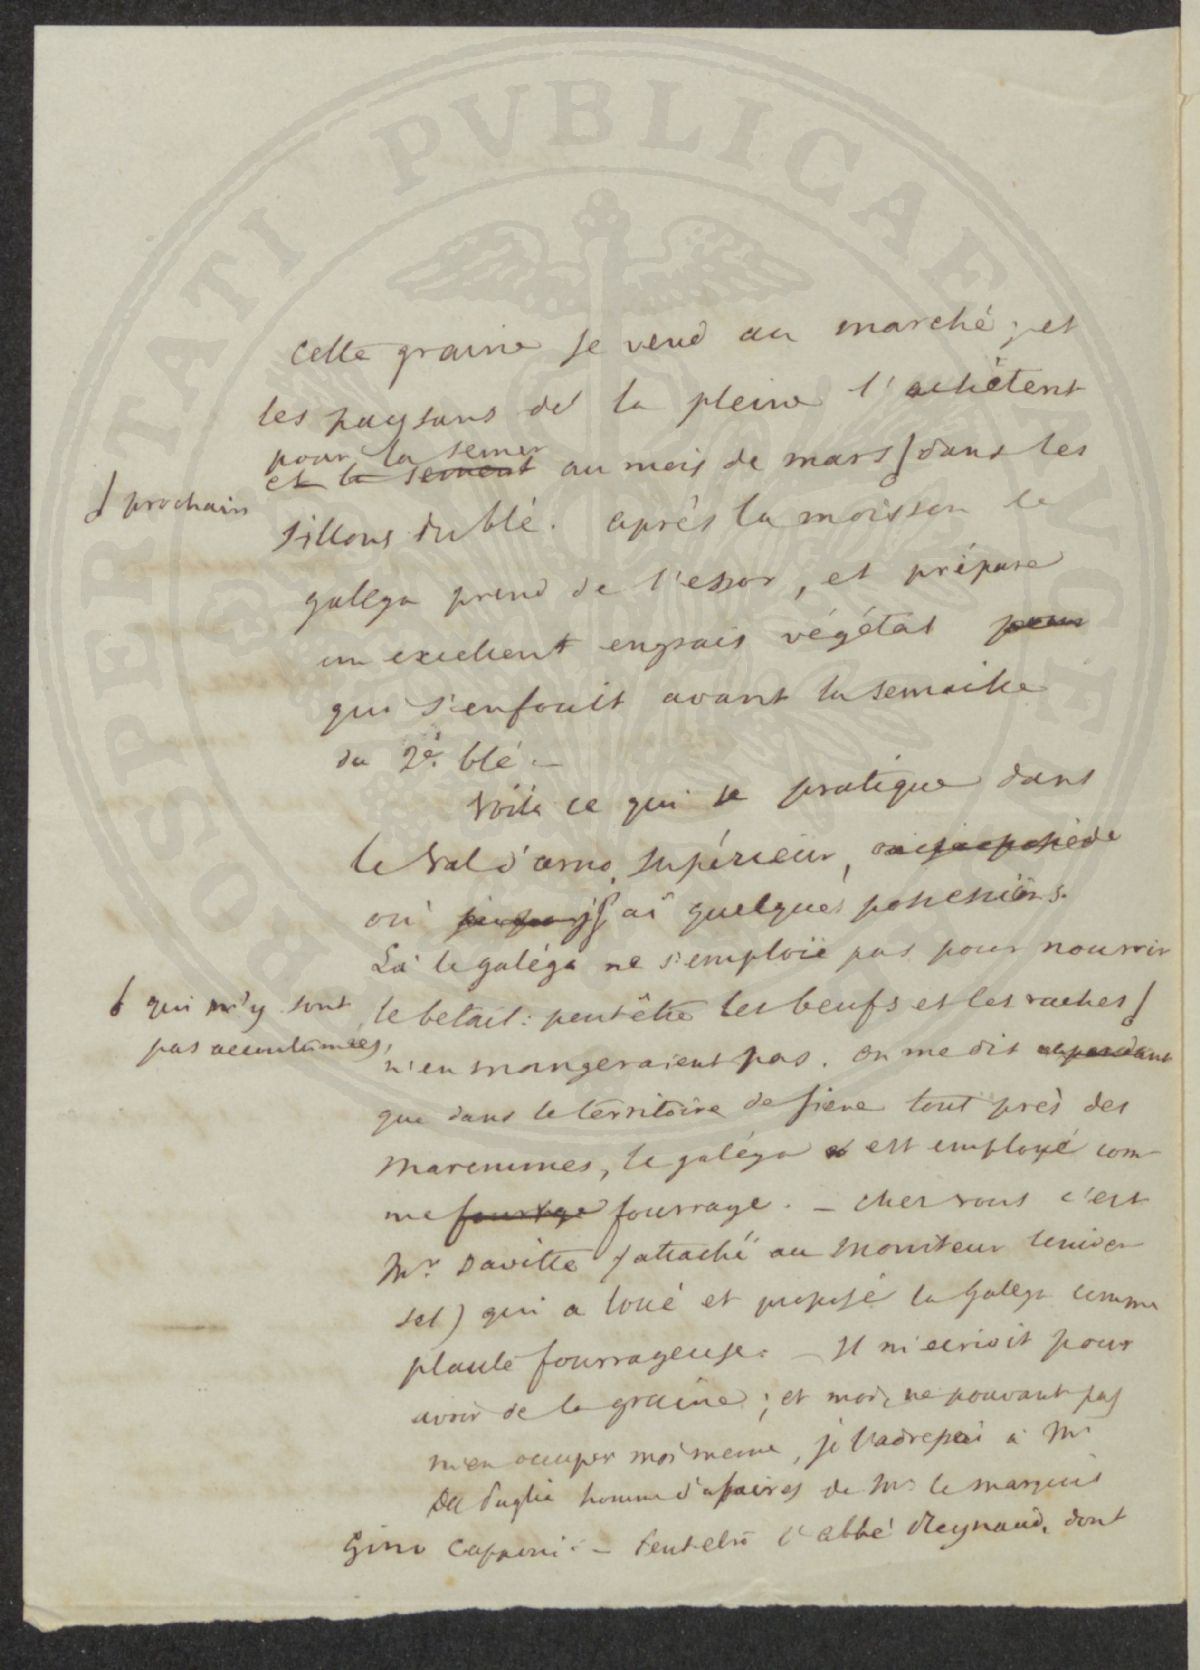 PROSPERITATI PVBLICAE AVGENDAE
Cette graine se vend au marché ; et
les paysans de la pleine l'achètent
pour la semer
et la sement au mois de mars ∫ dans les
∫ prochain
sillons du blé. après la moisson le
galega prend de l'essor, et prépare
un excellent engrais végétal pour
qui s'enfouit avant la semaille
du 2d. blé. —
Voilà ce qui se pratique dans
le Val d'arno supérieur,
où j'ai quelques possessions.
Là le galéga ne s'emploie pas pour nourrir
le betail : peutêtre les beufs et les vaches ∫
∫ qui n'y sont
pas accoutumées,
n'en mangeraient pas. On me dit cependant
que dans le territoire de Siene tout près des
maremmes, le galéga est employé com-
me fourrage fourrage. — Chez vous c'est
Mr. Davitte (attaché au Moniteur univer
sel) qui a loué et proposé la galega comme
plante fourrageuse. — Il m'ecrivit pour
avoir de la graine ; et moi, ne pouvant pas
m'en occuper moi meme, je l'adressai à Mr
Del Puglia homme d'afaires de Mr. le marquis
Gino Capponi. — Peutetre l'abbé Reynaud, dont